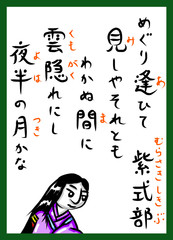 めぐり逢ひて
あ
紫式部
むらさきしきぶ
見しやそれとも
み
わかぬ間に
ま
雲隠れにし
くもがく
夜半の月かな
よは つき